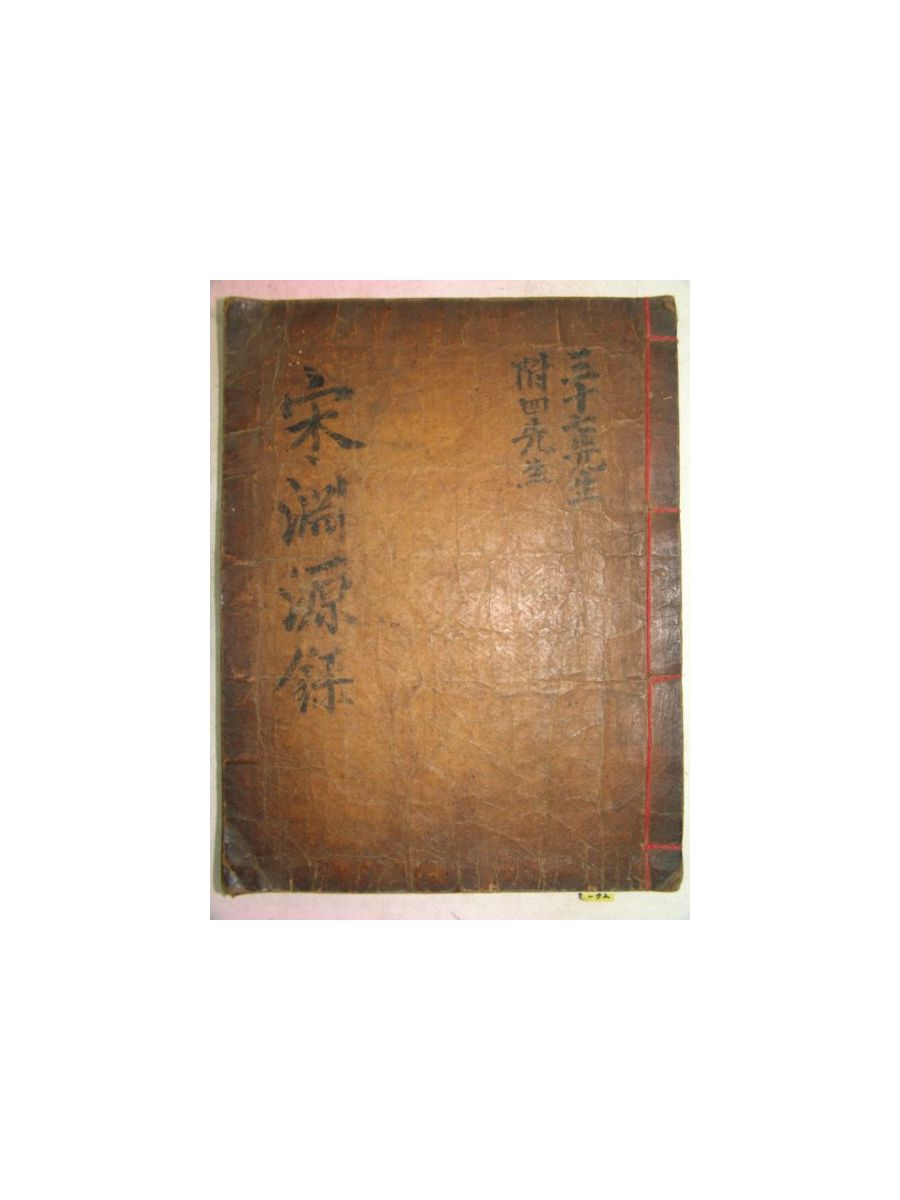 三十七先生
附四先生
宋淵源錄